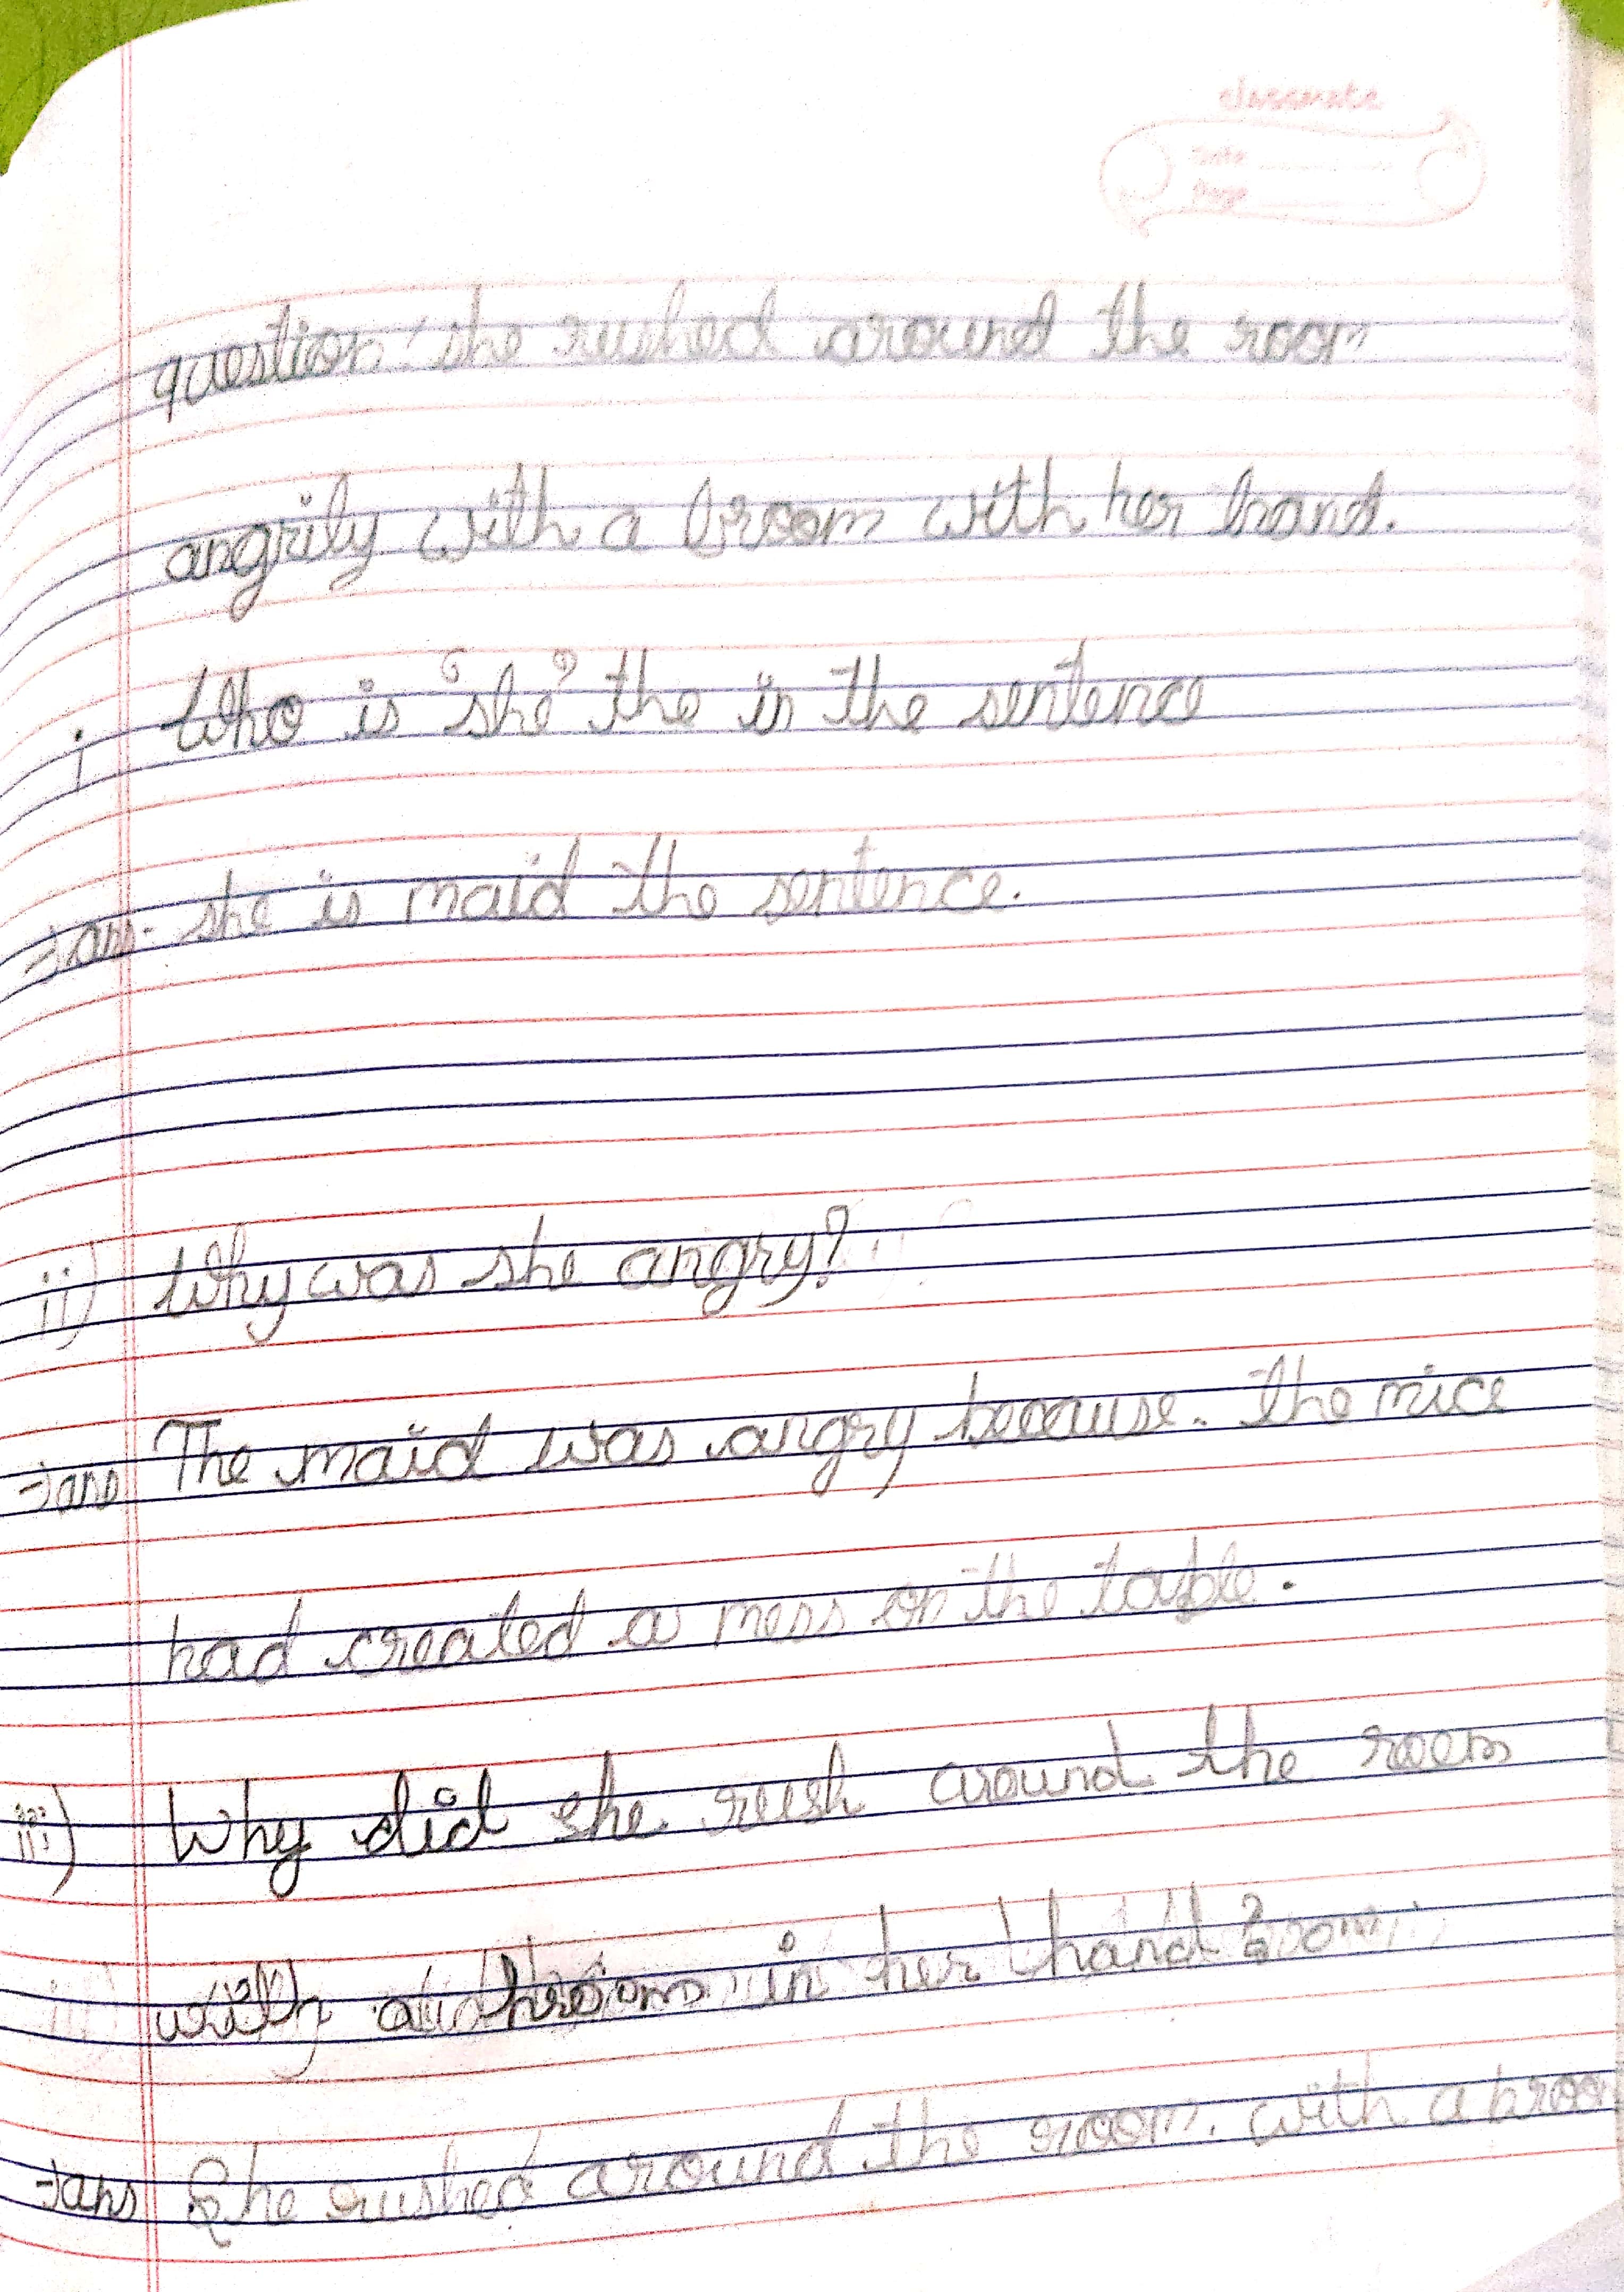 classmate
Date
Page
question: she rushed around the room
angrily with a broom with her hand.
i Who is "she" the in the sentence
→ans. she is maid the sentence.
ii) Why was she angry?
→ans The maid was angry because. the mice
had created a mess on the table.
iii) Why did she rush around the room
with a broom in her hand?
→ans She rushed around the room. with a broo